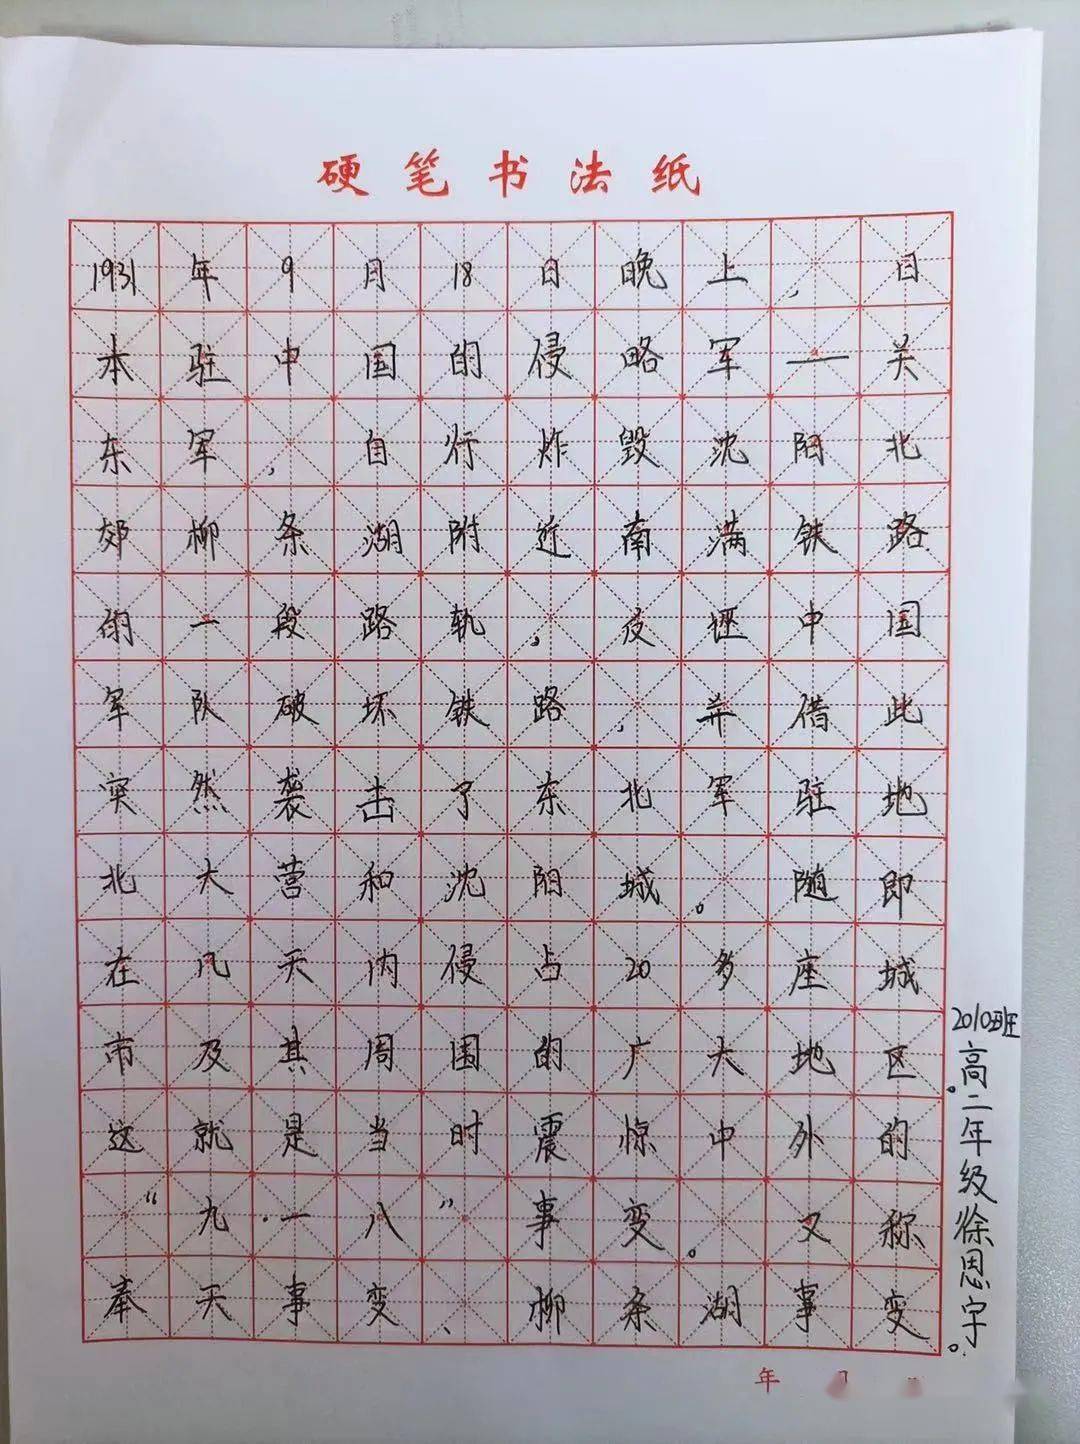 硬笔书法纸
1931年9月18日晚上,日
本驻中国的侵略军—关
东军,自行炸毁沈阳北
郊柳条湖附近南满铁路
的一段路轨,反诬中国
军队破坏铁路,并借此
突然袭击了东北军驻地
北大营和沈阳城。随即
在几天内侵占20多座城
市及其周围的广大地区。
这就是当时震惊中外的
“九·一八”事变。又称
奉天事变、柳条湖事变。
2010班
高二年级徐思宇
年